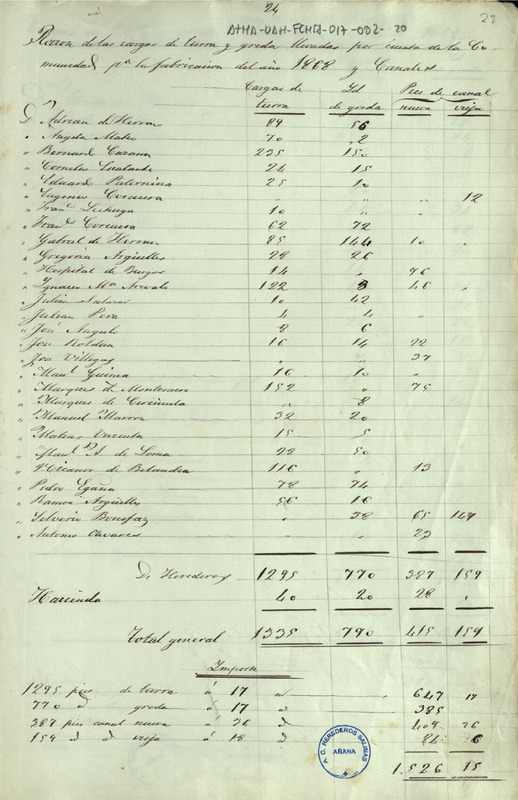 24
22
ATHA-DAH-FCHA-017-002-20
Razon de las cargas de tierra y greda llevadas por cuenta de la Co
munidad pª la fabricacion del año 1868 y Canales
Cargas de Id Pies de canal
tierra de greda nueva vieja
Dn Adrian de Herran 89 56
" Angela Mateo 70 2
" Bernard Cazana 235 150
" Cornelio 24 15
" Eduard Paternina 25 10
" Eugenio Corcuera " " " 12
" Franco Lechuga 10 " "
" Franco Corcuera 62 72
" Gabriel de Herran 85 144 10 "
" Gregoria Argüelles 28 26
" Hospital de Burgos 14 " 96
" Ignacio Mª Arevalo 122 3 46 "
" Julian Salazar 10 42
" Julian Pera 4 4 "
" José Angulo 8 6
" José Roldan 16 14 22
" José Villegas " " 37
" Manl Guinea 16 10 "
" Marques de Montesacro 152 " 75
" Marques de Ciriñuela " 8
" Manuel Marron 32 20
" Mateo Urrueta 15 5
" Manl A. de Loma 22 50
" Vª Cicanor de Belandia 116 " 13
" Pedro Egaña 78 74
" Ramon Argüelles 56 16
" Silverio Bonifaz " 38 65 147
" Antonio Alvarez " " 23
De Herederos 1295 770 387 159
Hacienda 40 20 28 "
Total general 1335 790 415 159
Importe
1295 pies de tierra á 17 647 17
770 d greda á 17 d 385
387 pies canal nueva á 36 d 409 26
159 d d vieja á 18 d 84 6
1.526 15
A. C. HEREDEROS SALINAS
AÑANA